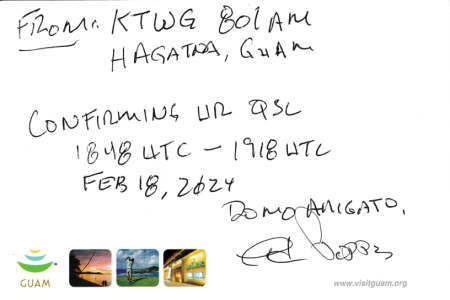 FROM: KTWG 801 AM
HAGATNA, GUAM
CONFIRMING UR QSL
1848 UTC - 1918 UTC
FEB 18, 2024
DOMO ARIGATO,
GUAM
www.visitguam.org